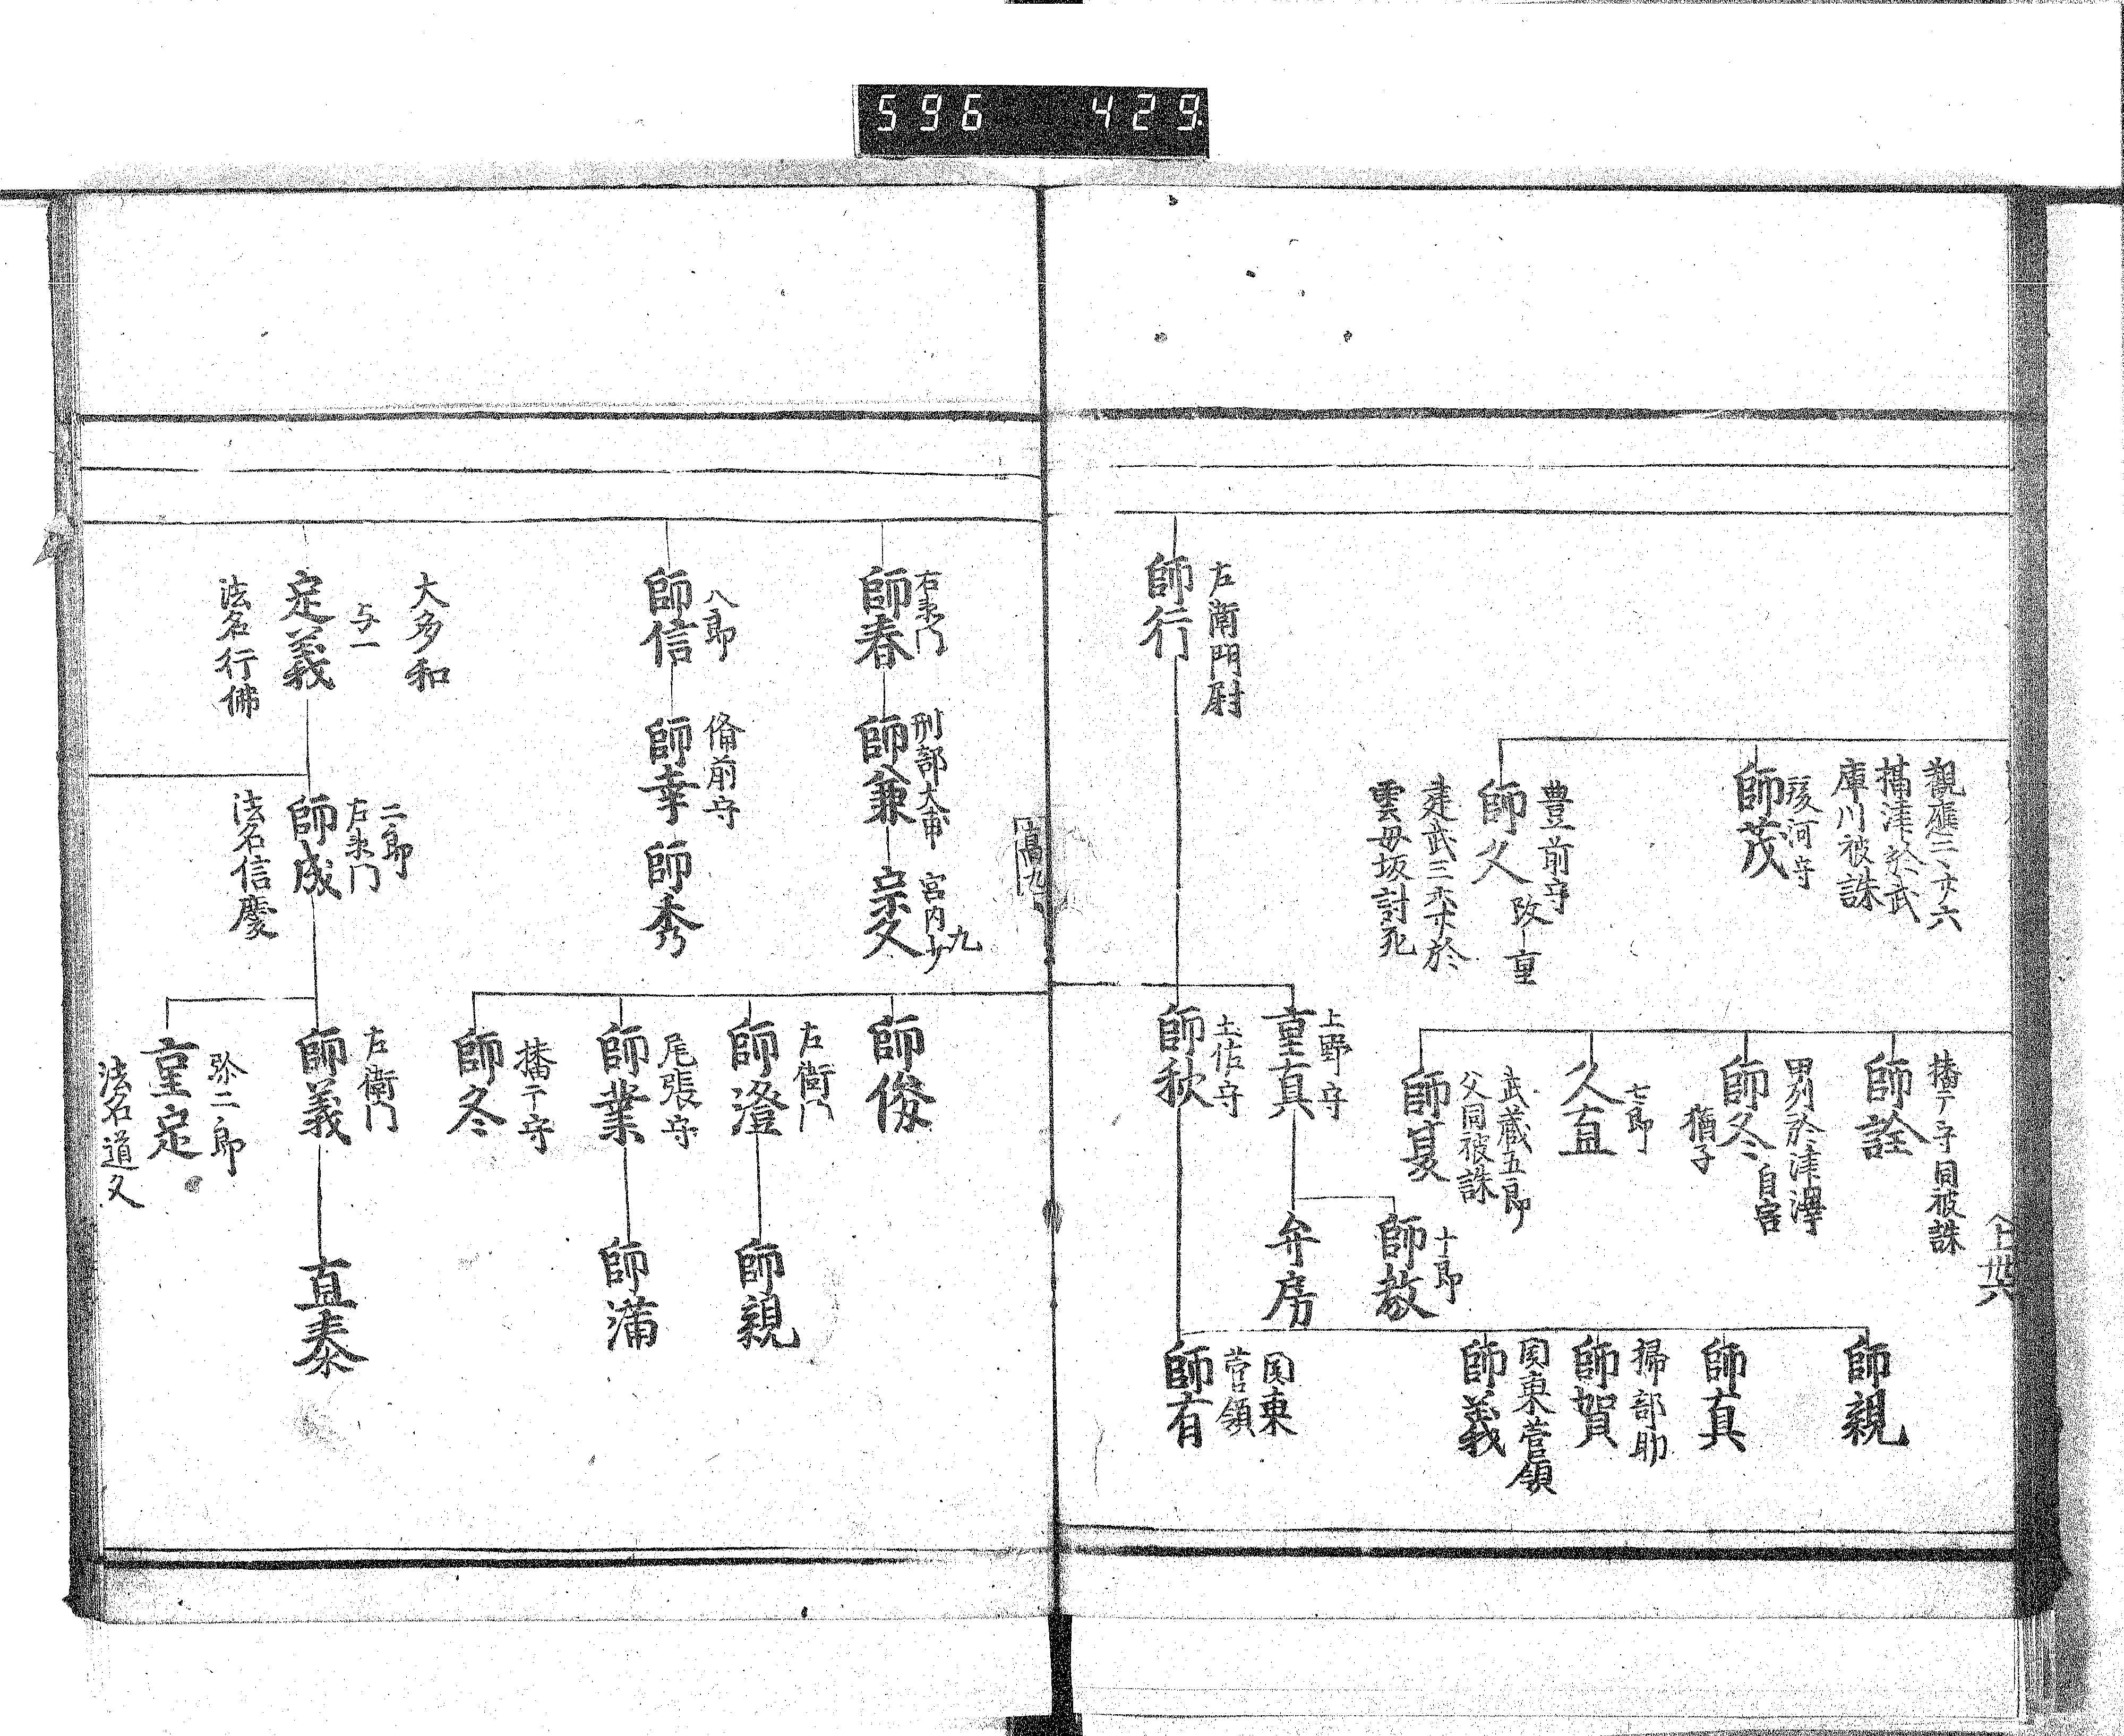 596 429
観應二、廿六
攝津於武
庫川被誅
師茂
駿河守
豊前守
師久
改重
建武三
於
雲母坂討死
左衛門尉
師行
播丁守同被誅
師詮
男於津澤
自害
師冬
猶子
七郎
久直
武蔵五郎
父同被誅
師夏
上野守
重真
土佐守
師秋
十郎
師教
弁房
師親
師真
掃部助
師賀
関東菅領
師義
関東
菅領
師有
上卅六
高九
右衛門
師春
刑部大甫
師兼
宮内少
九
八郎
師信
備前守
師幸
師秀
大多和
与一
定義
法名行佛
二郎
左衛門
師成
法名信慶
師俊
左衛門
師澄
尾張守
師業
播丁守
師冬
左衛門
師義
弥二郎
重定
法名道久
師親
師満
直泰